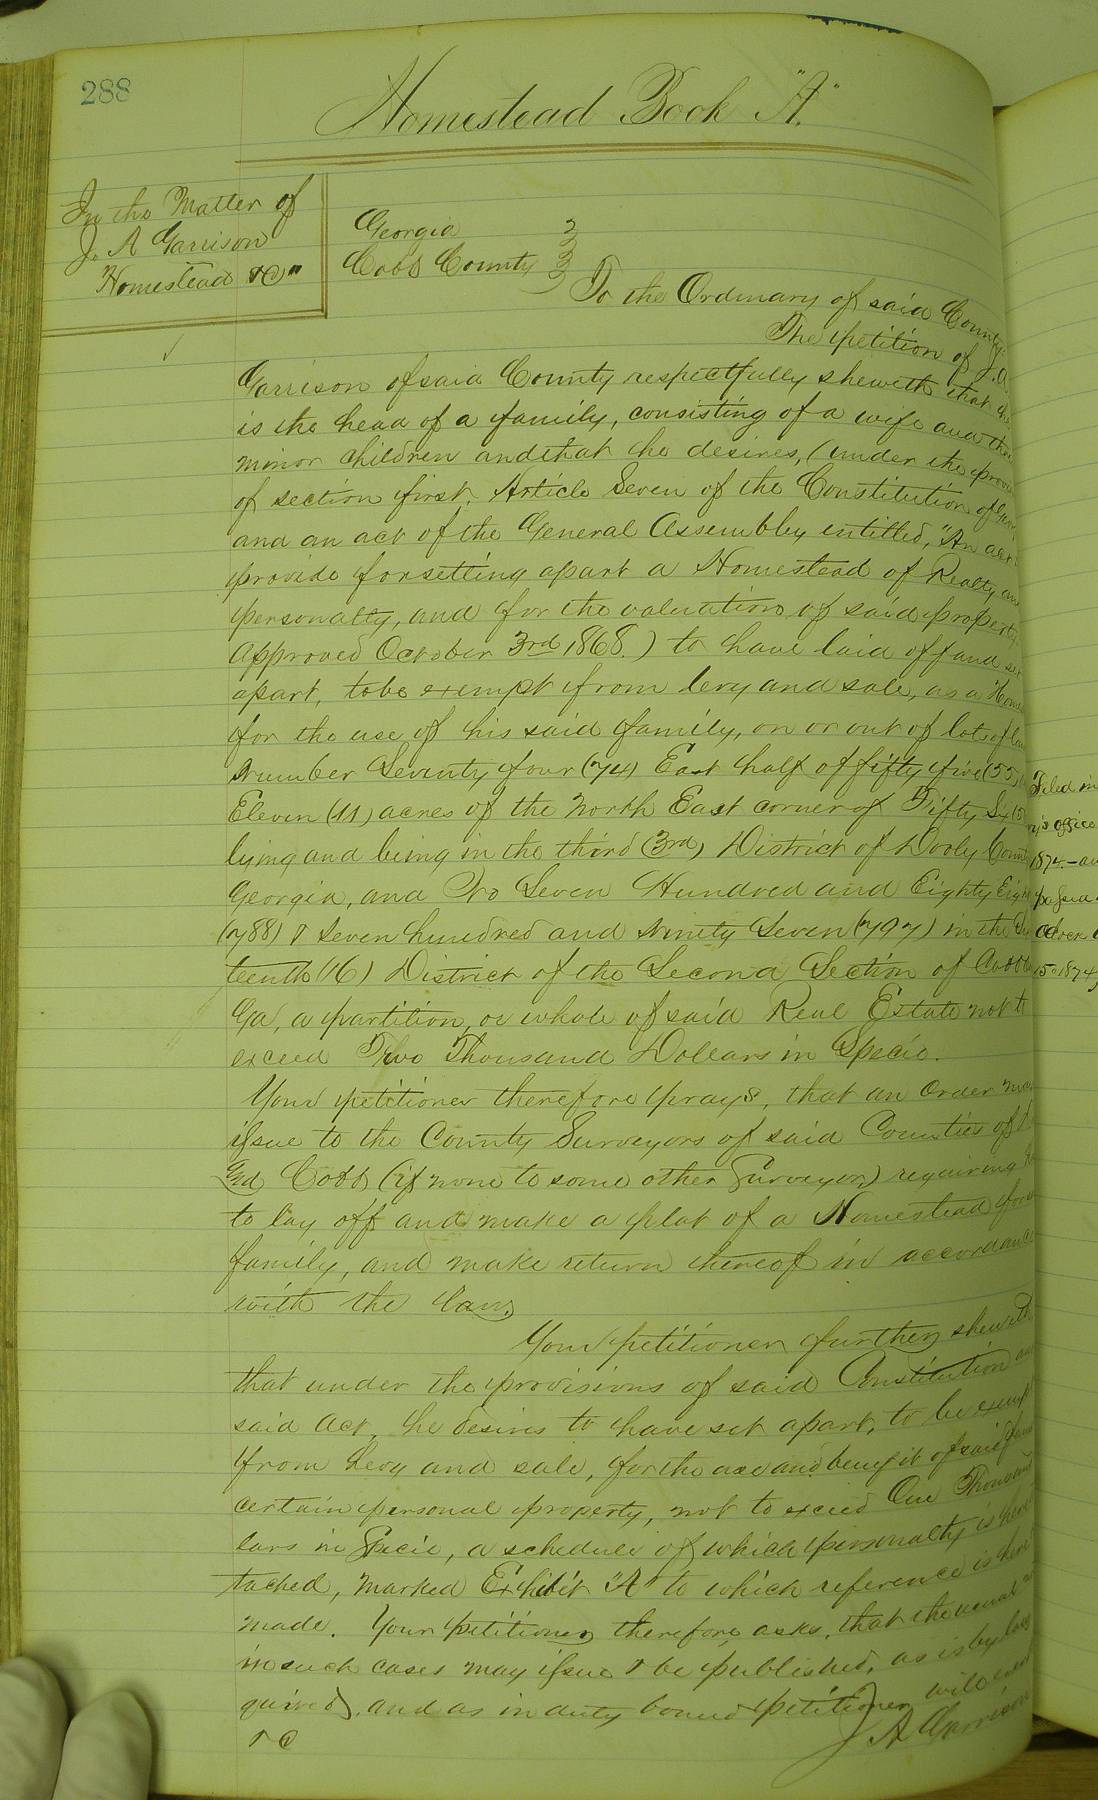 288
Homestead Book "A."
In the Matter of
J. A Garrison
Homestead &C"
Georgia
Cobb County
To the Ordinary of said County
The petition of J. A
Garrison of said County respectfully sheweth that he
is the head of a family, consisting of a wife and
minor children and that he desires, (under the
of section first. Article Seven of the Constitution of
and an act of the General Assembly entitled, "An act
provide for setting apart a Homestead of Realty and
personalty, and for the valuation of said property
Approved October 3rd 1868.) to have laid off and set
apart, to be exempt from levy and sale, as a
for the use of his said family, on or out of lots of
number Seventy four (74) East half of fifty five (55)
Eleven (11) acres of the North East corner of Fifty Six
lying and being in the third (3rd) District of Dooly
Georgia, and No Seven Hundred and Eighty Eight
(788) & Seven hundred and ninety Seven (797) in the
teenth (16) District of the Second Section of Cobb
Ga, a partition, or whole of said Real Estate not to
exceed Two Thousand Dollars in Specie.
Your petitioner therefore prays, that an order may
issue to the County Surveyors of said Counties of
And Cobb (if none to some other Surveyor) requiring
to lay off and make a plat of a Homestead for
family, and make return thereof in accordance
with the law.
Your petitioner further sheweth
that under the provisions of said Constitution and
said Act, he desires to have set apart, to be exempt
from Levy and sale, for the use and benefit of said
certain personal property, not to exceed One Thousand
lars in Specie, a schedule of which personalty is
tached, marked Exhibit "A" to which reference is
made. Your petitioner therefore, asks, that the usual
in such cases may issue & be published, as is by law
quired, and as in duty bound petitioner will ever
& C
J A Garrison
Filed in
office
1874
1874